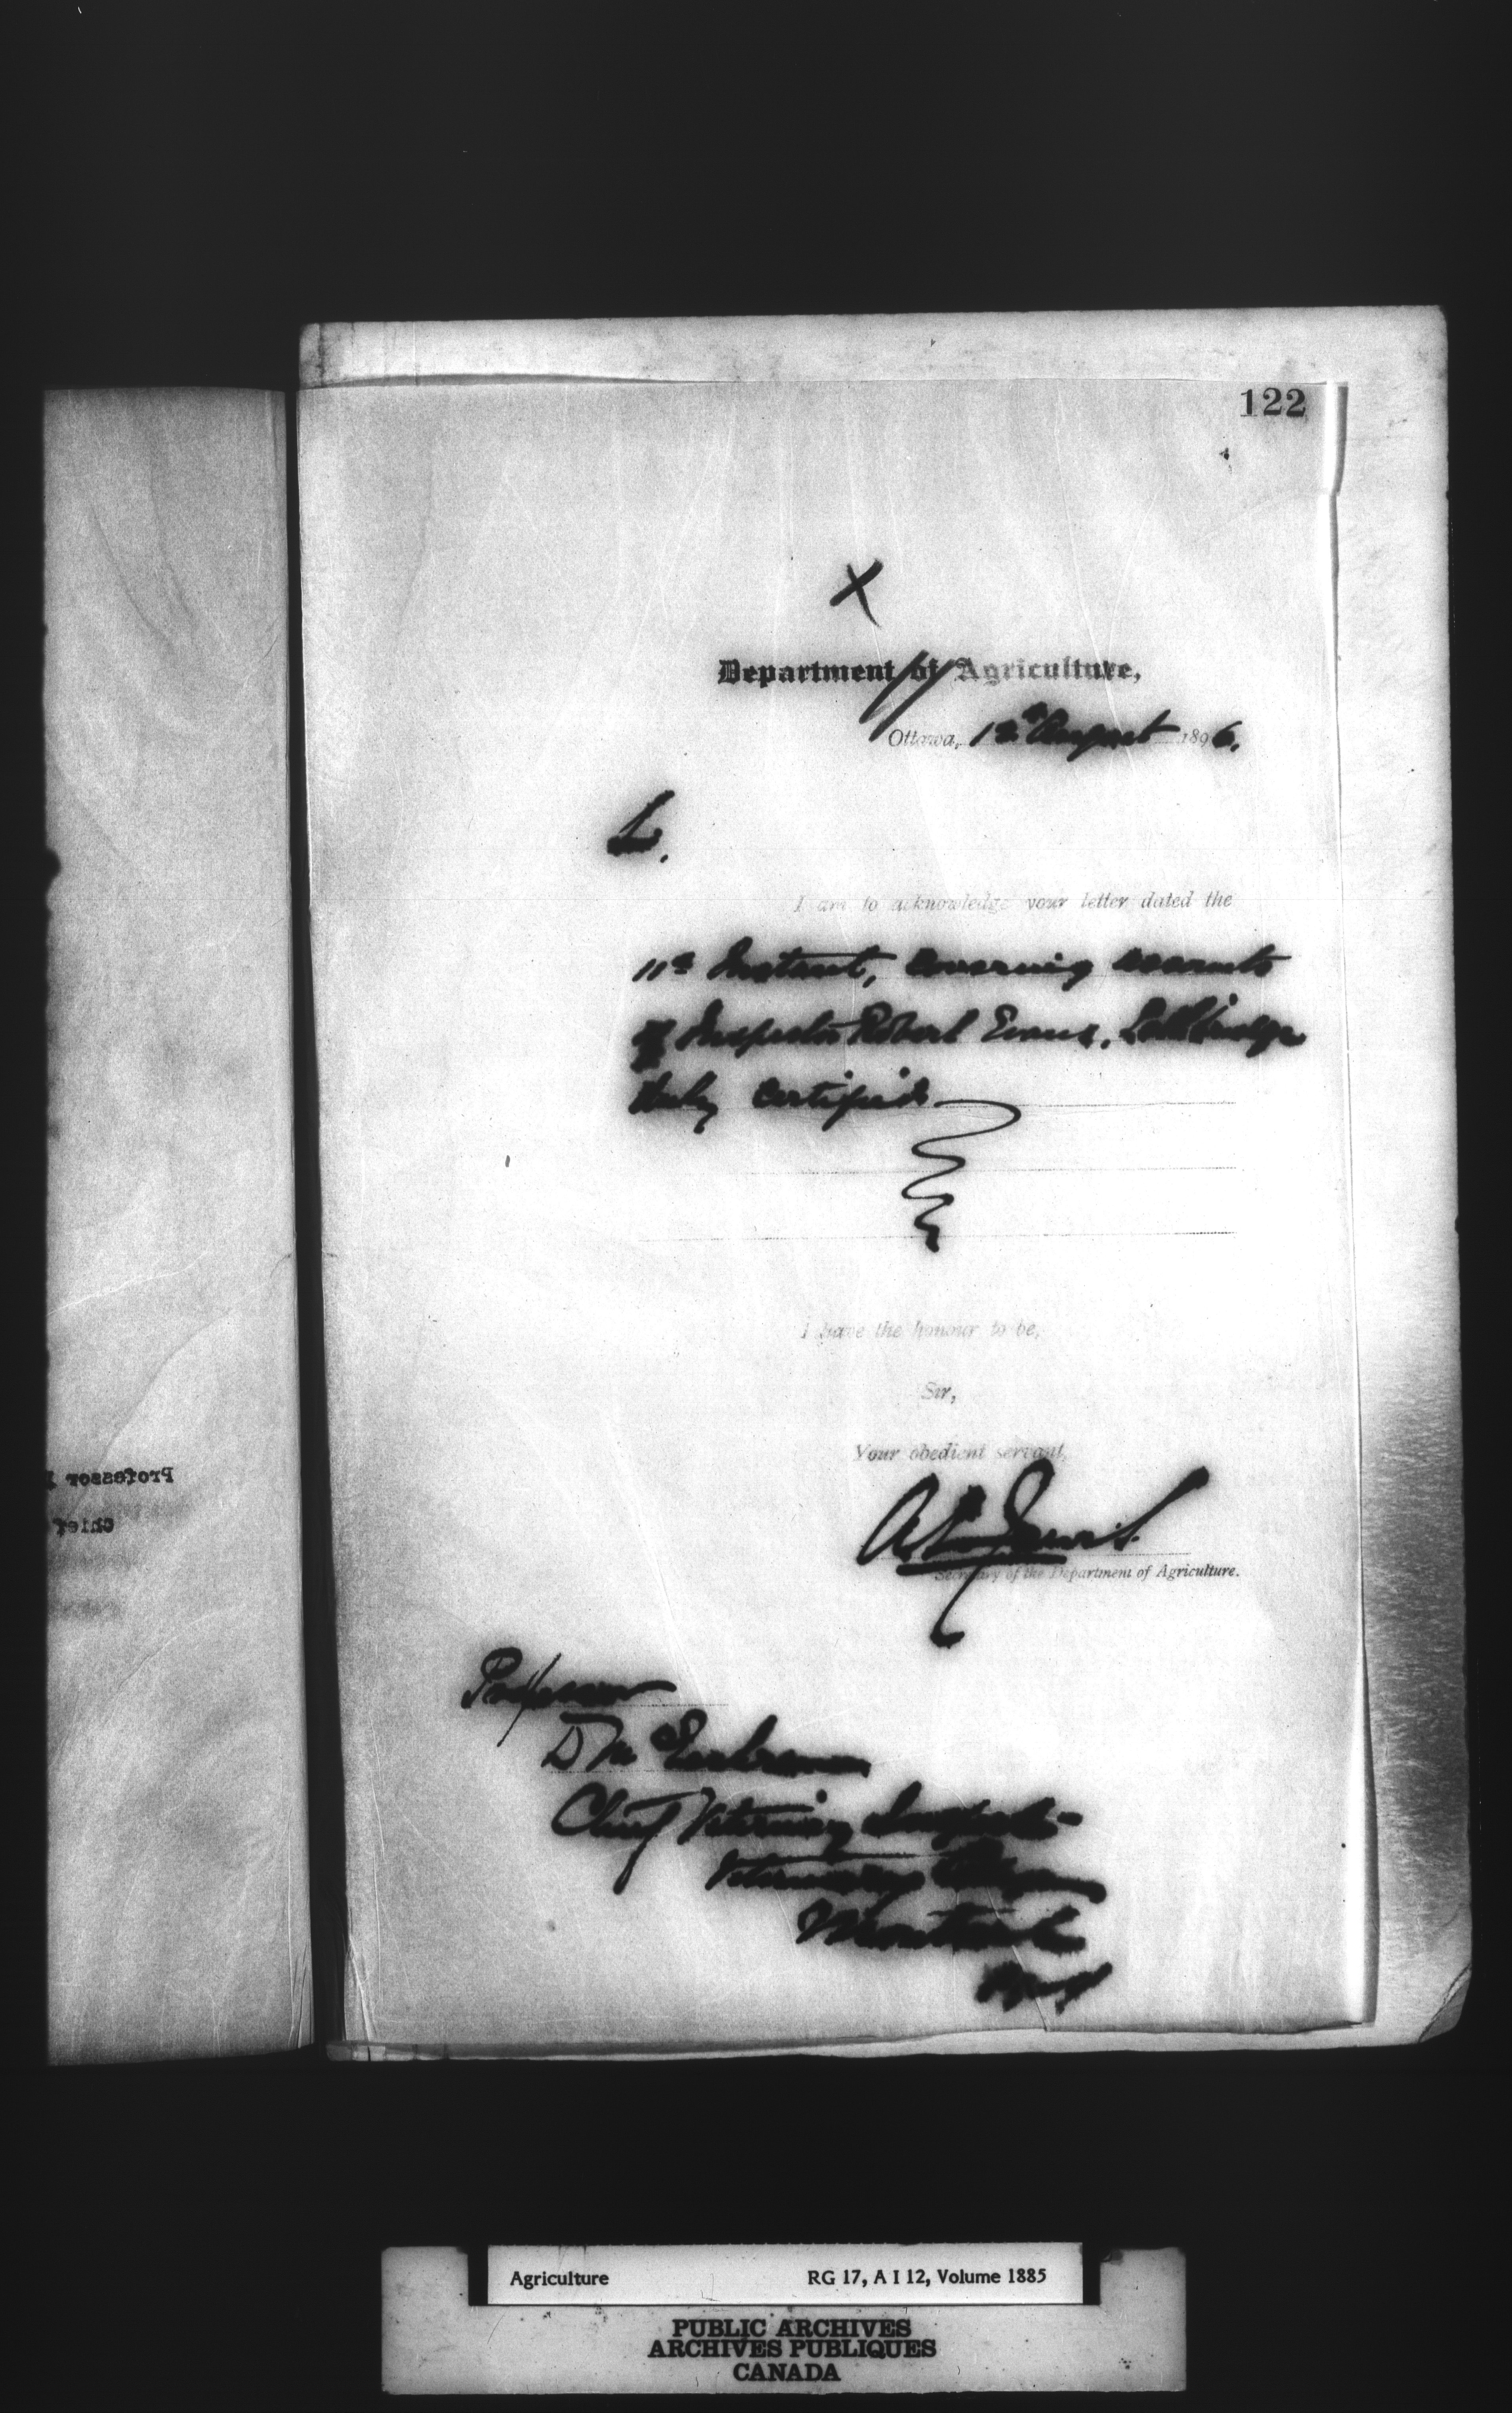 122
X
Department of Agriculture,
Ottawa, 12th August 1896.
I am to acknowledge your letter dated the
11th Instant, covering accounts
of Inspector Robert Evans, Lethbridge
duly certified
I have the honour to be,
Sir,
Your obedient servant,
Secretary of the Department of Agriculture.
Professor
D McEachran
Chief Veterinary Inspector
Veterinary
Montreal
Professor
Chief
Agriculture RG 17, A I 12, Volume 1885
PUBLIC ARCHIVES
ARCHIVES PUBLIQUES
CANADA